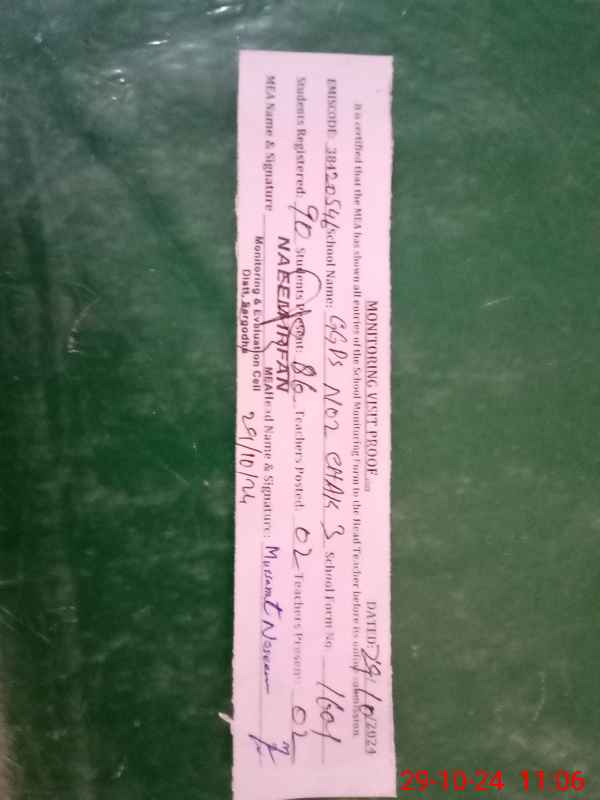 MONITORING VISIT PROOF DATED: 29/10/2024
It is certified that the MEA has shown all entries of the School Monitoring Form to the Head Teacher before its online submission.
EMISCODE: 38420546 School Name: GGPS NO2 CHAK 3 School Form No: 1601
Students Registered: 90 Students Present: 86 Teachers Posted: 02 Teachers Present: 02
MEA Name & Signature Head Name & Signature: Mussarat Naseem
NAEEM IRFAN
MEA
Monitoring & Evaluation Cell
Distt. Sargodha
29/10/24
29-10-24 11:06